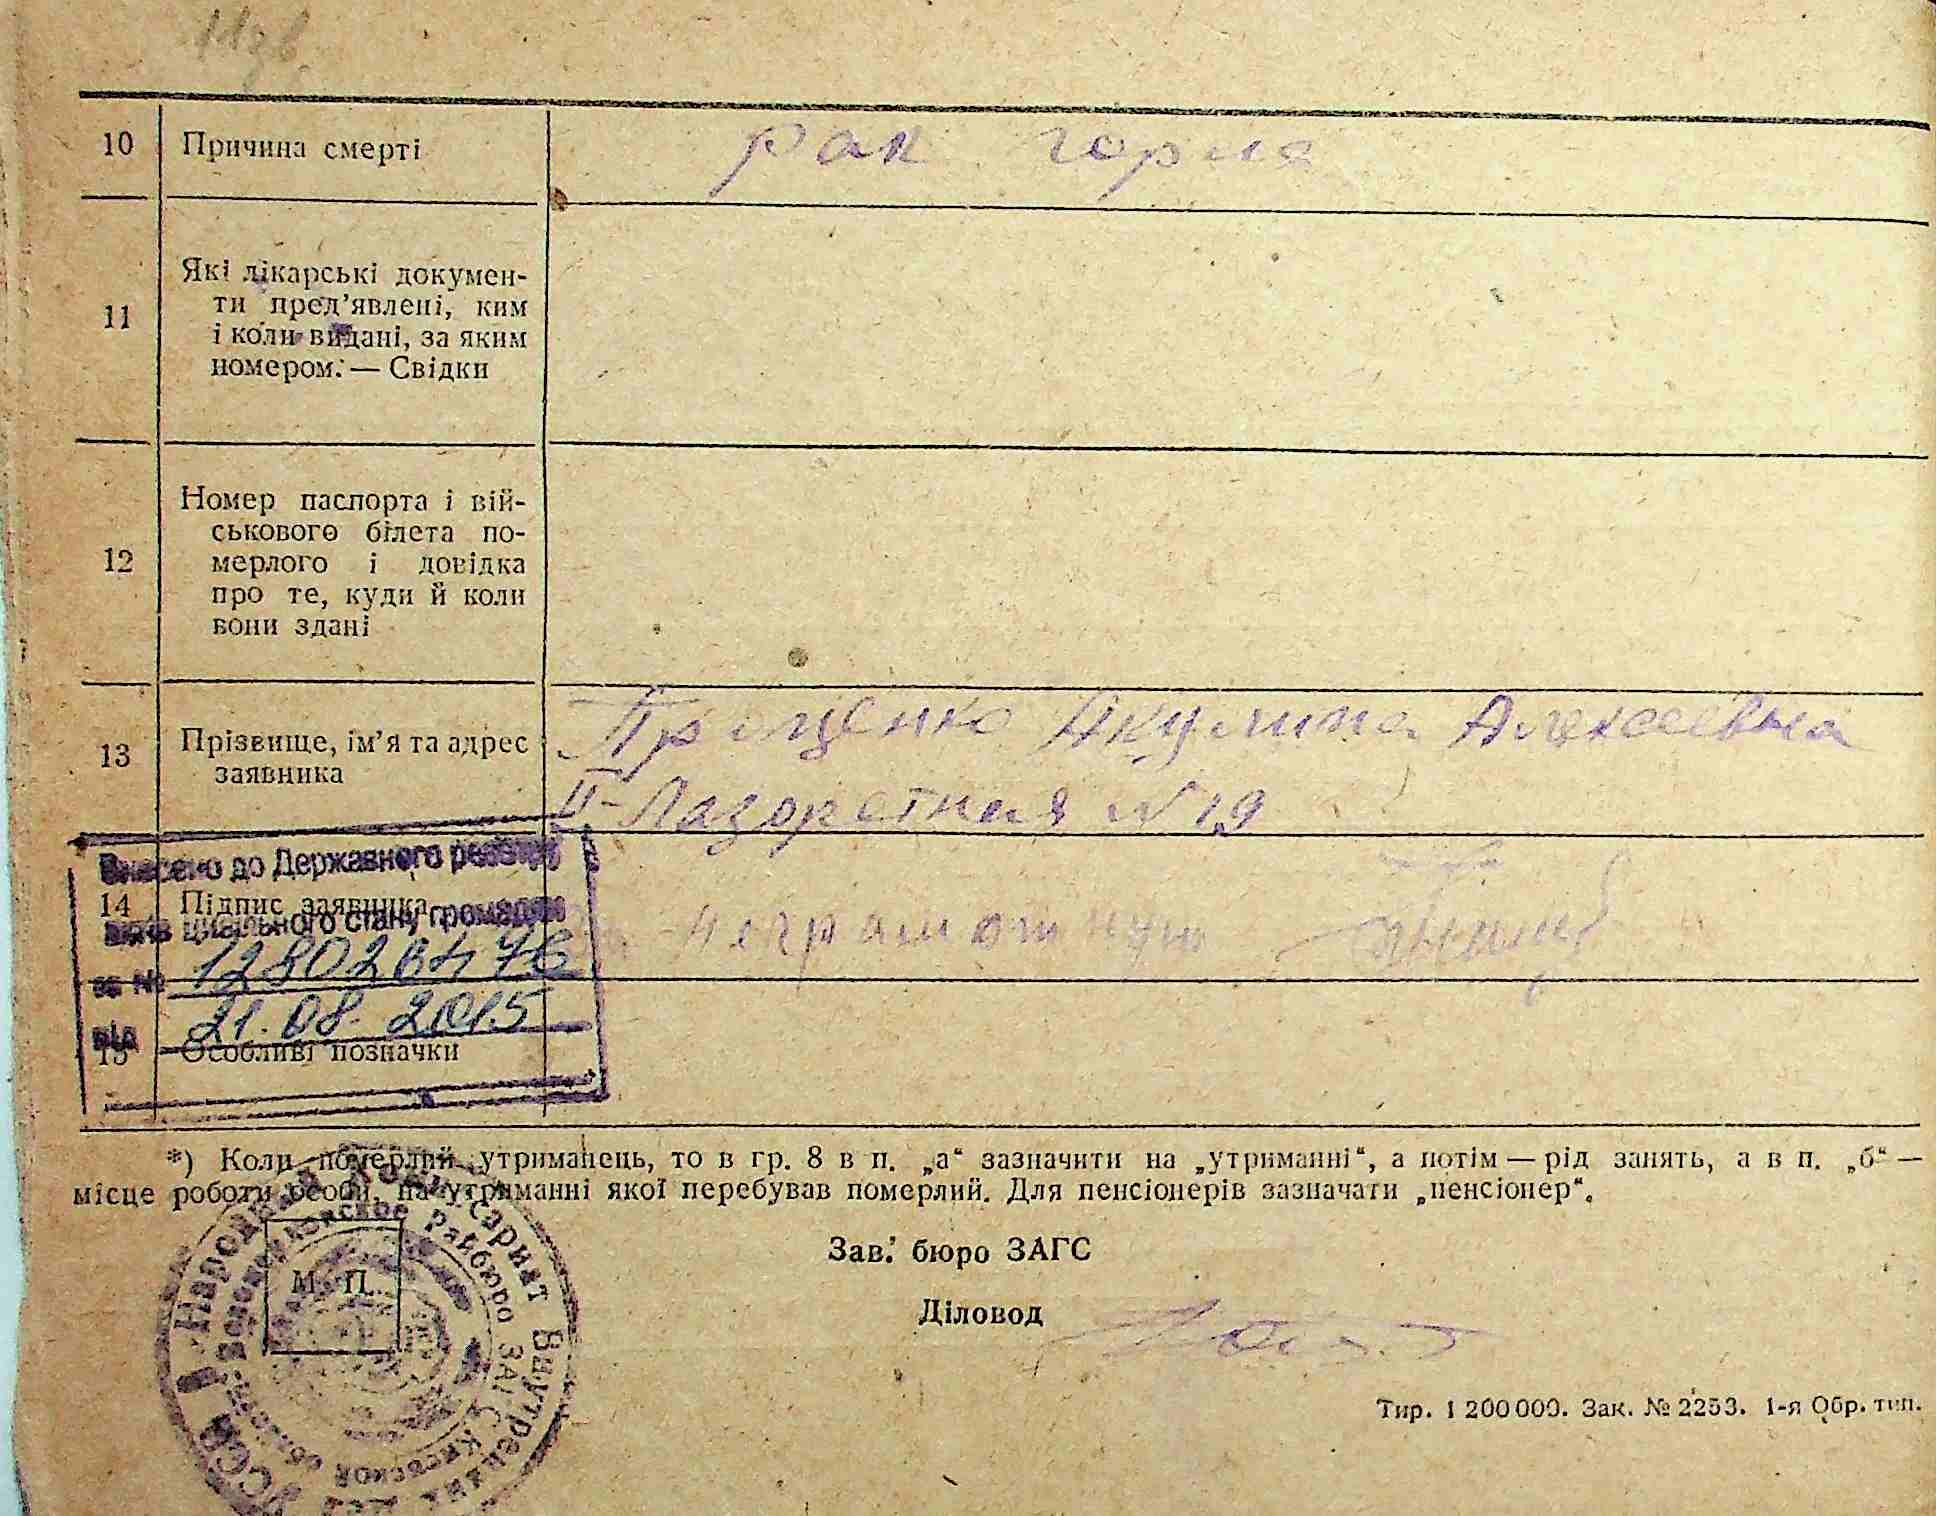 10 Причина смерті рак горла
11 Які лікарські докумен-
ти пред’явлені, ким
і коли видані, за яким
номером. — Свідки
12 Номер паспорта і вій-
ськового білета по-
мерлого і довідка
про те, куди й коли
вони здані
13 Прізвище, ім’я та адрес
заявника
Проценко Акулина Алексеевна
II-Лазоретная №19
Внесено до Державного реєстру
14 Підпис заявника
неграмотную
актів цивільного стану громадян
за №
від 21.08.2015
15 Особливі позначки
*) Коли померлий утриманець, то в гр. 8 в п. „а“ зазначити на „утриманні“, а потім — рід занять, а в п. „б“ —
місце роботи особи, на утриманні якої перебував померлий. Для пенсіонерів зазначати „пенсіонер“.
Народный Комиссариат Внутренних Дел УССР
Райбюро ЗАГС Киевской област
М. П.
Зав. бюро ЗАГС
Діловод
Тир. 1 200 000. Зак. № 2253. 1-я Обр. тип.